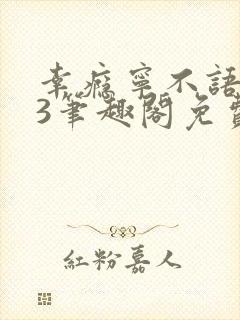 幸瘾寜不語
3筆趣閣免費
紅粉嘉人